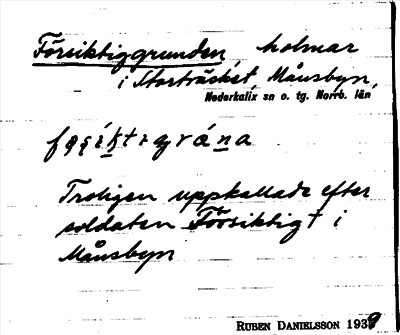 Försiktiggrunden, holmar
i Storträsket, Månsbyn,
Nederkalix sn o. tg. Norrb. län
Troligen uppkallade efter
soldaten Försiktigt i
Månsbyn
RUBEN DANIELSSON 1939